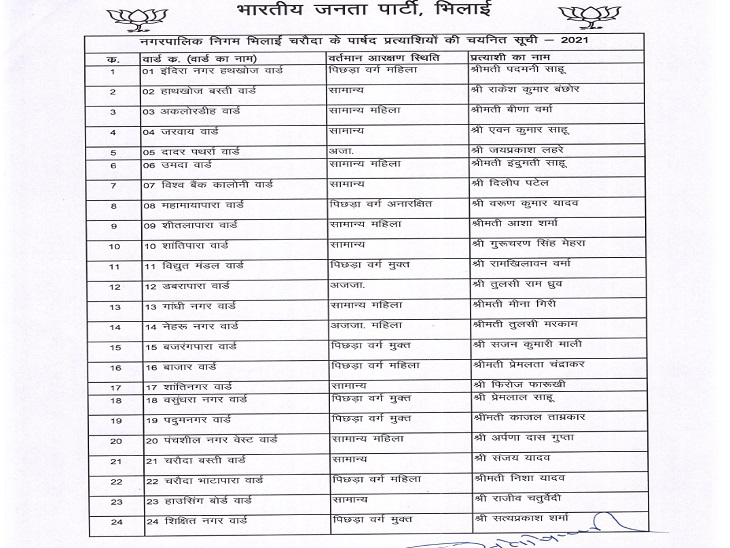 भारतीय जनता पार्टी, भिलाई
नगरपालिक निगम भिलाई चरौदा के पार्षद प्रत्याशियों की चयनित सूची – 2021
क. वार्ड क. (वार्ड का नाम) वर्तमान आरक्षण स्थिति प्रत्याशी का नाम
1 01 इंदिरा नगर हथखोज वार्ड पिछड़ा वर्ग महिला श्रीमती पदमनी साहू
2 02 हाथखोज बस्ती वार्ड सामान्य श्री राकेश कुमार बंछोर
3 03 अकलोरडीह वार्ड सामान्य महिला श्रीमती बीणा वर्मा
4 04 जरवाय वार्ड सामान्य श्री एवन कुमार साहू
5 05 दादर पथर्रा वार्ड अजा. श्री जयप्रकाश लहरे
6 06 उमदा वार्ड सामान्य महिला श्रीमती इंदुमती साहू
7 07 विश्व बैंक कालोनी वार्ड सामान्य श्री दिलीप पटेल
8 08 महामायापारा वार्ड पिछड़ा वर्ग अनारक्षित श्री वरूण कुमार यादव
9 09 शीतलापारा वार्ड सामान्य महिला श्रीमती आशा शर्मा
10 10 शांतिपारा वार्ड सामान्य श्री गुरूचरण सिंह मेहरा
11 11 विद्युत मंडल वार्ड पिछड़ा वर्ग मुक्त श्री रामखिलावन वर्मा
12 12 डबरापारा वार्ड अजजा. श्री तुलसी राम ध्रुव
13 13 गांधी नगर वार्ड सामान्य महिला श्रीमती मीना गिरी
14 14 नेहरू नगर वार्ड अजजा. महिला श्रीमती तुलसी मरकाम
15 15 बजरंगपारा वार्ड पिछड़ा वर्ग मुक्त श्री सजन कुमारी माली
16 16 बाजार वार्ड पिछड़ा वर्ग महिला श्रीमती प्रेमलता चंद्राकर
17 17 शांतिनगर वार्ड सामान्य श्री फिरोज फारूखी
18 18 वसुंधरा नगर वार्ड पिछड़ा वर्ग मुक्त श्री प्रेमलाल साहू
19 19 पदुमनगर वार्ड पिछड़ा वर्ग मुक्त श्रीमती काजल ताम्रकार
20 20 पंचशील नगर वेस्ट वार्ड सामान्य महिला श्री अर्पणा दास गुप्ता
21 21 चरौदा बस्ती वार्ड सामान्य श्री संजय यादव
22 22 चरौदा भाटापारा वार्ड पिछड़ा वर्ग महिला श्रीमती निशा यादव
23 23 हाउसिंग बोर्ड वार्ड सामान्य श्री राजीव चतुर्वेदी
24 24 शिक्षित नगर वार्ड पिछड़ा वर्ग मुक्त श्री सत्यप्रकाश शर्मा